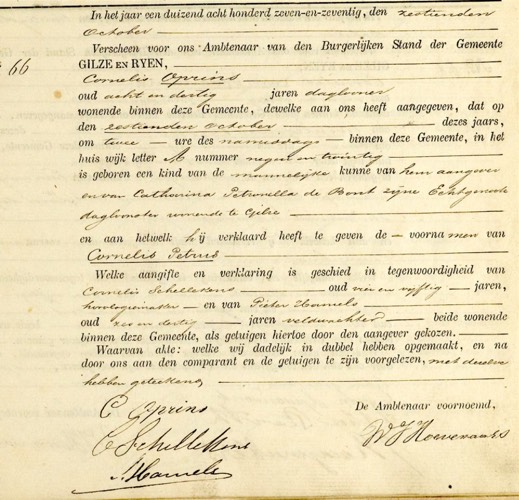 In het jaar een duizend acht honderd zeven-en-zeventig, den zestienden
October
Verscheen voor ons Ambtenaar van den Burgerlijken Stand der Gemeente
66 GILZE EN RYEN,
Cornelis Oprins
oud acht en dertig jaren daglooner
wonende binnen deze Gemeente, dewelke aan ons heeft aangegeven, dat op
den zestienden October dezes jaars,
om twee ure des namiddags binnen deze Gemeente, in het
huis wijk letter A nummer negen en twintig
is geboren een kind van de mannelijke kunne van hem aangever
en van Catharina Petronella de Bont zijne Echtgenoote
daglonster wonende te Gilze
en aan hetwelk hij verklaard heeft te geven de voornamen van
Cornelis Petrus
Welke aangifte en verklaring is geschied in tegenwoordigheid van
Cornelis Schellekens oud vier en vijftig jaren,
horologiemaker en van Pieter Hamels
oud zes en dertig jaren veldwachter beide wonende
binnen deze Gemeente, als getuigen hiertoe door den aangever gekozen.
Waarvan akte: welke wij dadelijk in dubbel hebben opgemaakt, en na
door ons aan den comparant en de getuigen te zijn voorgelezen, met dezelve
hebben geteekend
C Oprins
De Ambtenaar voornoemd,
C Schellekens
P. Hamels